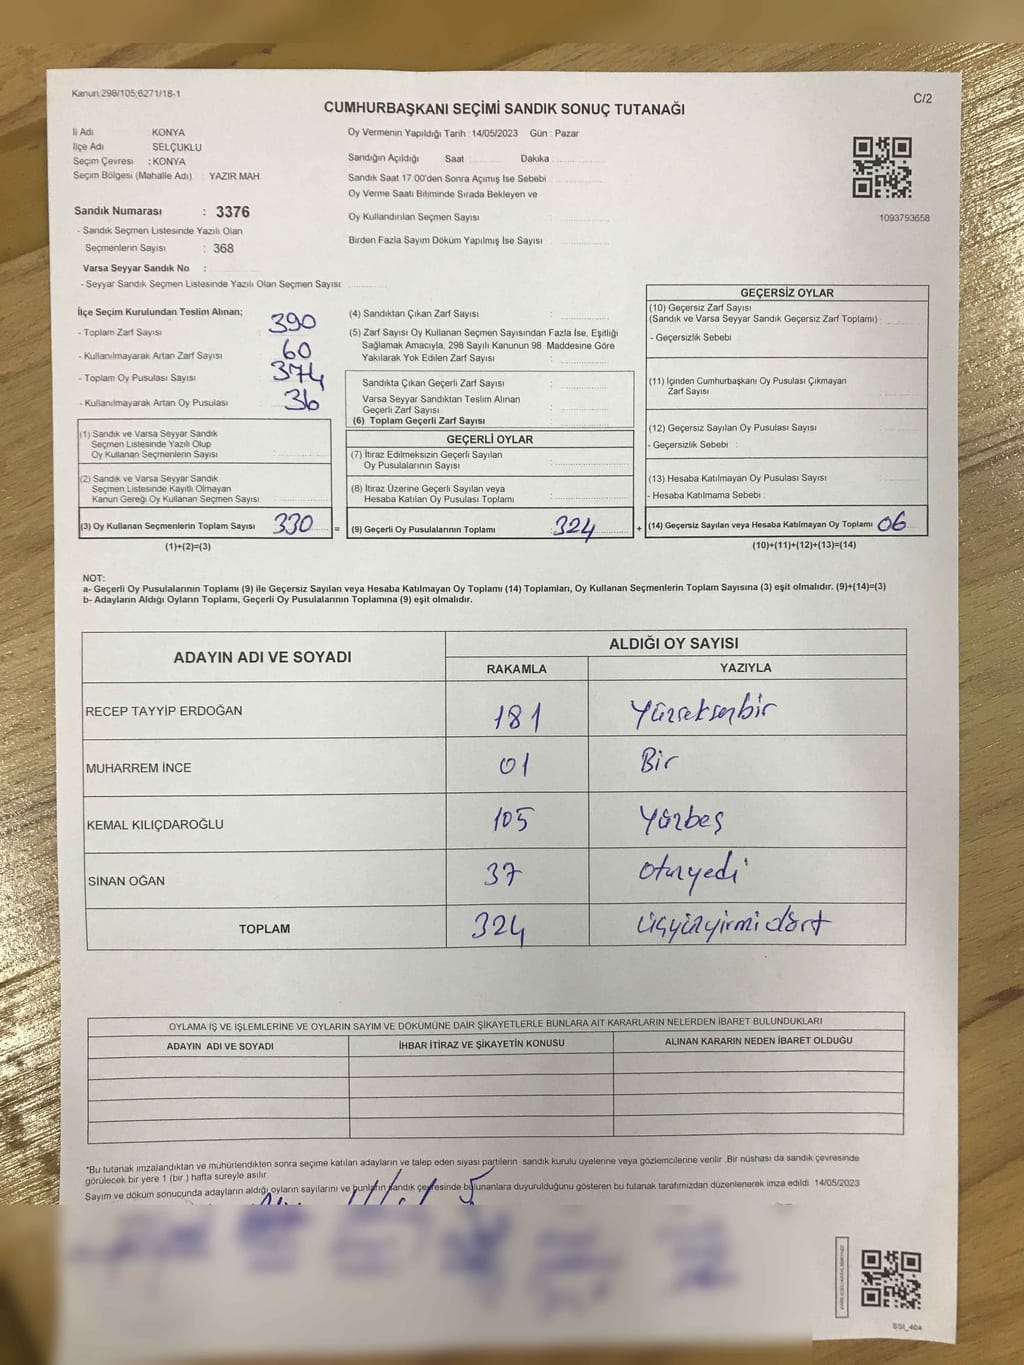 Kanun:298/105;6271/18-1
C/2
CUMHURBAŞKANI SEÇİMİ SANDIK SONUÇ TUTANAĞI
İli Adı KONYA
İlçe Adı SELÇUKLU
Seçim Çevresi : KONYA
Seçim Bölgesi (Mahalle Adı) YAZIR MAH.
Oy Vermenin Yapıldığı Tarih : 14/05/2023 Gün : Pazar
Sandığın Açıldığı Saat Dakika
Sandık Saat 17:00'den Sonra Açımış İse Sebebi
Oy Verme Saati Bitiminde Sırada Bekleyen ve
Oy Kullandırılan Seçmen Sayısı
Birden Fazla Sayım Döküm Yapılmış İse Sayısı
1093793658
Sandık Numarası : 3376
- Sandık Seçmen Listesinde Yazılı Olan
Seçmenlerin Sayısı : 368
Varsa Seyyar Sandık No :
- Seyyar Sandık Seçmen Listesinde Yazılı Olan Seçmen Sayısı:
İlçe Seçim Kurulundan Teslim Alınan;
- Toplam Zarf Sayısı 390
- Kullanılmayarak Artan Zarf Sayısı 60
- Toplam Oy Pusulası Sayısı 374
- Kullanılmayarak Artan Oy Pusulası 36
(1) Sandık ve Varsa Seyyar Sandık
Seçmen Listesinde Yazılı Olup
Oy Kullanan Seçmenlerin Sayısı
(2) Sandık ve Varsa Seyyar Sandık
Seçmen Listesinde Kayıtlı Olmayan
Kanun Gereği Oy Kullanan Seçmen Sayısı
(3) Oy Kullanan Seçmenlerin Toplam Sayısı 330 =
(1)+(2)=(3)
(4) Sandıktan Çıkan Zarf Sayısı :
(5) Zarf Sayısı Oy Kullanan Seçmen Sayısından Fazla İse, Eşitliği
Sağlamak Amacıyla; 298 Sayılı Kanunun 98. Maddesine Göre
Yakılarak Yok Edilen Zarf Sayısı :
Sandıkta Çıkan Geçerli Zarf Sayısı :
Varsa Seyyar Sandıktan Teslim Alınan
Geçerli Zarf Sayısı :
(6) Toplam Geçerli Zarf Sayısı :
GEÇERLİ OYLAR
(7) İtiraz Edilmeksizin Geçerli Sayılan
Oy Pusulalarının Sayısı
(8) İtiraz Üzerine Geçerli Sayılan veya
Hesaba Katılan Oy Pusulası Toplamı
(9) Geçerli Oy Pusulalarının Toplamı : 324 +
GEÇERSİZ OYLAR
(10) Geçersiz Zarf Sayısı
(Sandık ve Varsa Seyyar Sandık Geçersiz Zarf Toplamı)
- Geçersizlik Sebebi
(11) İçinden Cumhurbaşkanı Oy Pusulası Çıkmayan
Zarf Sayısı
(12) Geçersiz Sayılan Oy Pusulası Sayısı
- Geçersizlik Sebebi :
(13) Hesaba Katılmayan Oy Pusulası Sayısı
- Hesaba Katılmama Sebebi :
(14) Geçersiz Sayılan veya Hesaba Katılmayan Oy Toplamı 06
(10)+(11)+(12)+(13)=(14)
NOT:
a- Geçerli Oy Pusulalarının Toplamı (9) ile Geçersiz Sayılan veya Hesaba Katılmayan Oy Toplamı (14) Toplamları, Oy Kullanan Seçmenlerin Toplam Sayısına (3) eşit olmalıdır. (9)+(14)=(3)
b- Adayların Aldığı Oyların Toplamı, Geçerli Oy Pusulalarının Toplamına (9) eşit olmalıdır.
ADAYIN ADI VE SOYADI
ALDIĞI OY SAYISI
RAKAMLA YAZIYLA
RECEP TAYYİP ERDOĞAN 181 Yüzseksenbir
MUHARREM İNCE 01 Bir
KEMAL KILIÇDAROĞLU 105 Yüzbeş
SİNAN OĞAN 37 Otuzyedi
TOPLAM 324 üçyüzyirmidört
OYLAMA İŞ VE İŞLEMLERİNE VE OYLARIN SAYIM VE DÖKÜMÜNE DAİR ŞİKAYETLERLE BUNLARA AİT KARARLARIN NELERDEN İBARET BULUNDUKLARI
ADAYIN ADI VE SOYADI İHBAR İTİRAZ VE ŞİKAYETİN KONUSU ALINAN KARARIN NEDEN İBARET OLDUĞU
*Bu tutanak imzalandıktan ve mühürlendikten sonra seçime katılan adayların ve talep eden siyasi partilerin sandık kurulu üyelerine veya gözlemcilerine verilir. Bir nüshası da sandık çevresinde
görülecek bir yere 1 (bir) hafta süreyle asılır.
Sayım ve döküm sonucunda adayların aldığı oyların sayılarını ve bunların sandık çevresinde bulunanlara duyurulduğunu gösteren bu tutanak tarafımızdan düzenlenerek imza edildi. 14/05/2023
SSI_404